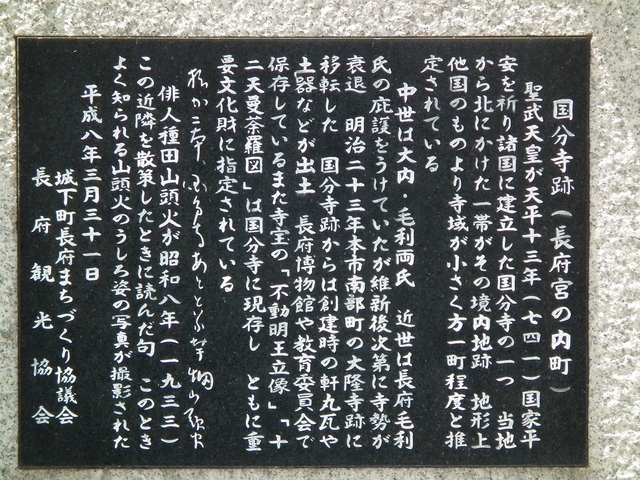 国分寺跡（長府宮の内町）
聖武天皇が天平十三年（七四一）国家平
安を祈り諸国に建立した国分寺の一つ　当地
から北にかけた一帯がその境内地跡　地形上
他国のものより寺域が小さく方一町程度と推
定されている
中世は大内・毛利両氏　近世は長府毛利
氏の庇護をうけていたが維新後次第に寺勢が
衰退　明治二十三年本市南部町の大隆寺跡に
移転した　国分寺跡からは創建時の軒丸瓦や
土器などが出土　長府博物館や教育委員会で
保存しているまた寺宝の「不動明王立像」「十
二天曼荼羅図」は国分寺に現存し　ともに重
要文化財に指定されている
あとといふ芋畑　山頭火
俳人種田山頭火が昭和八年（一九三三）
この近隣を散策したときに読んだ句　このとき
よく知られる山頭火のうしろ姿の写真が撮影された
平成八年三月三十一日
城下町長府まちづくり協議会
長府観光協会